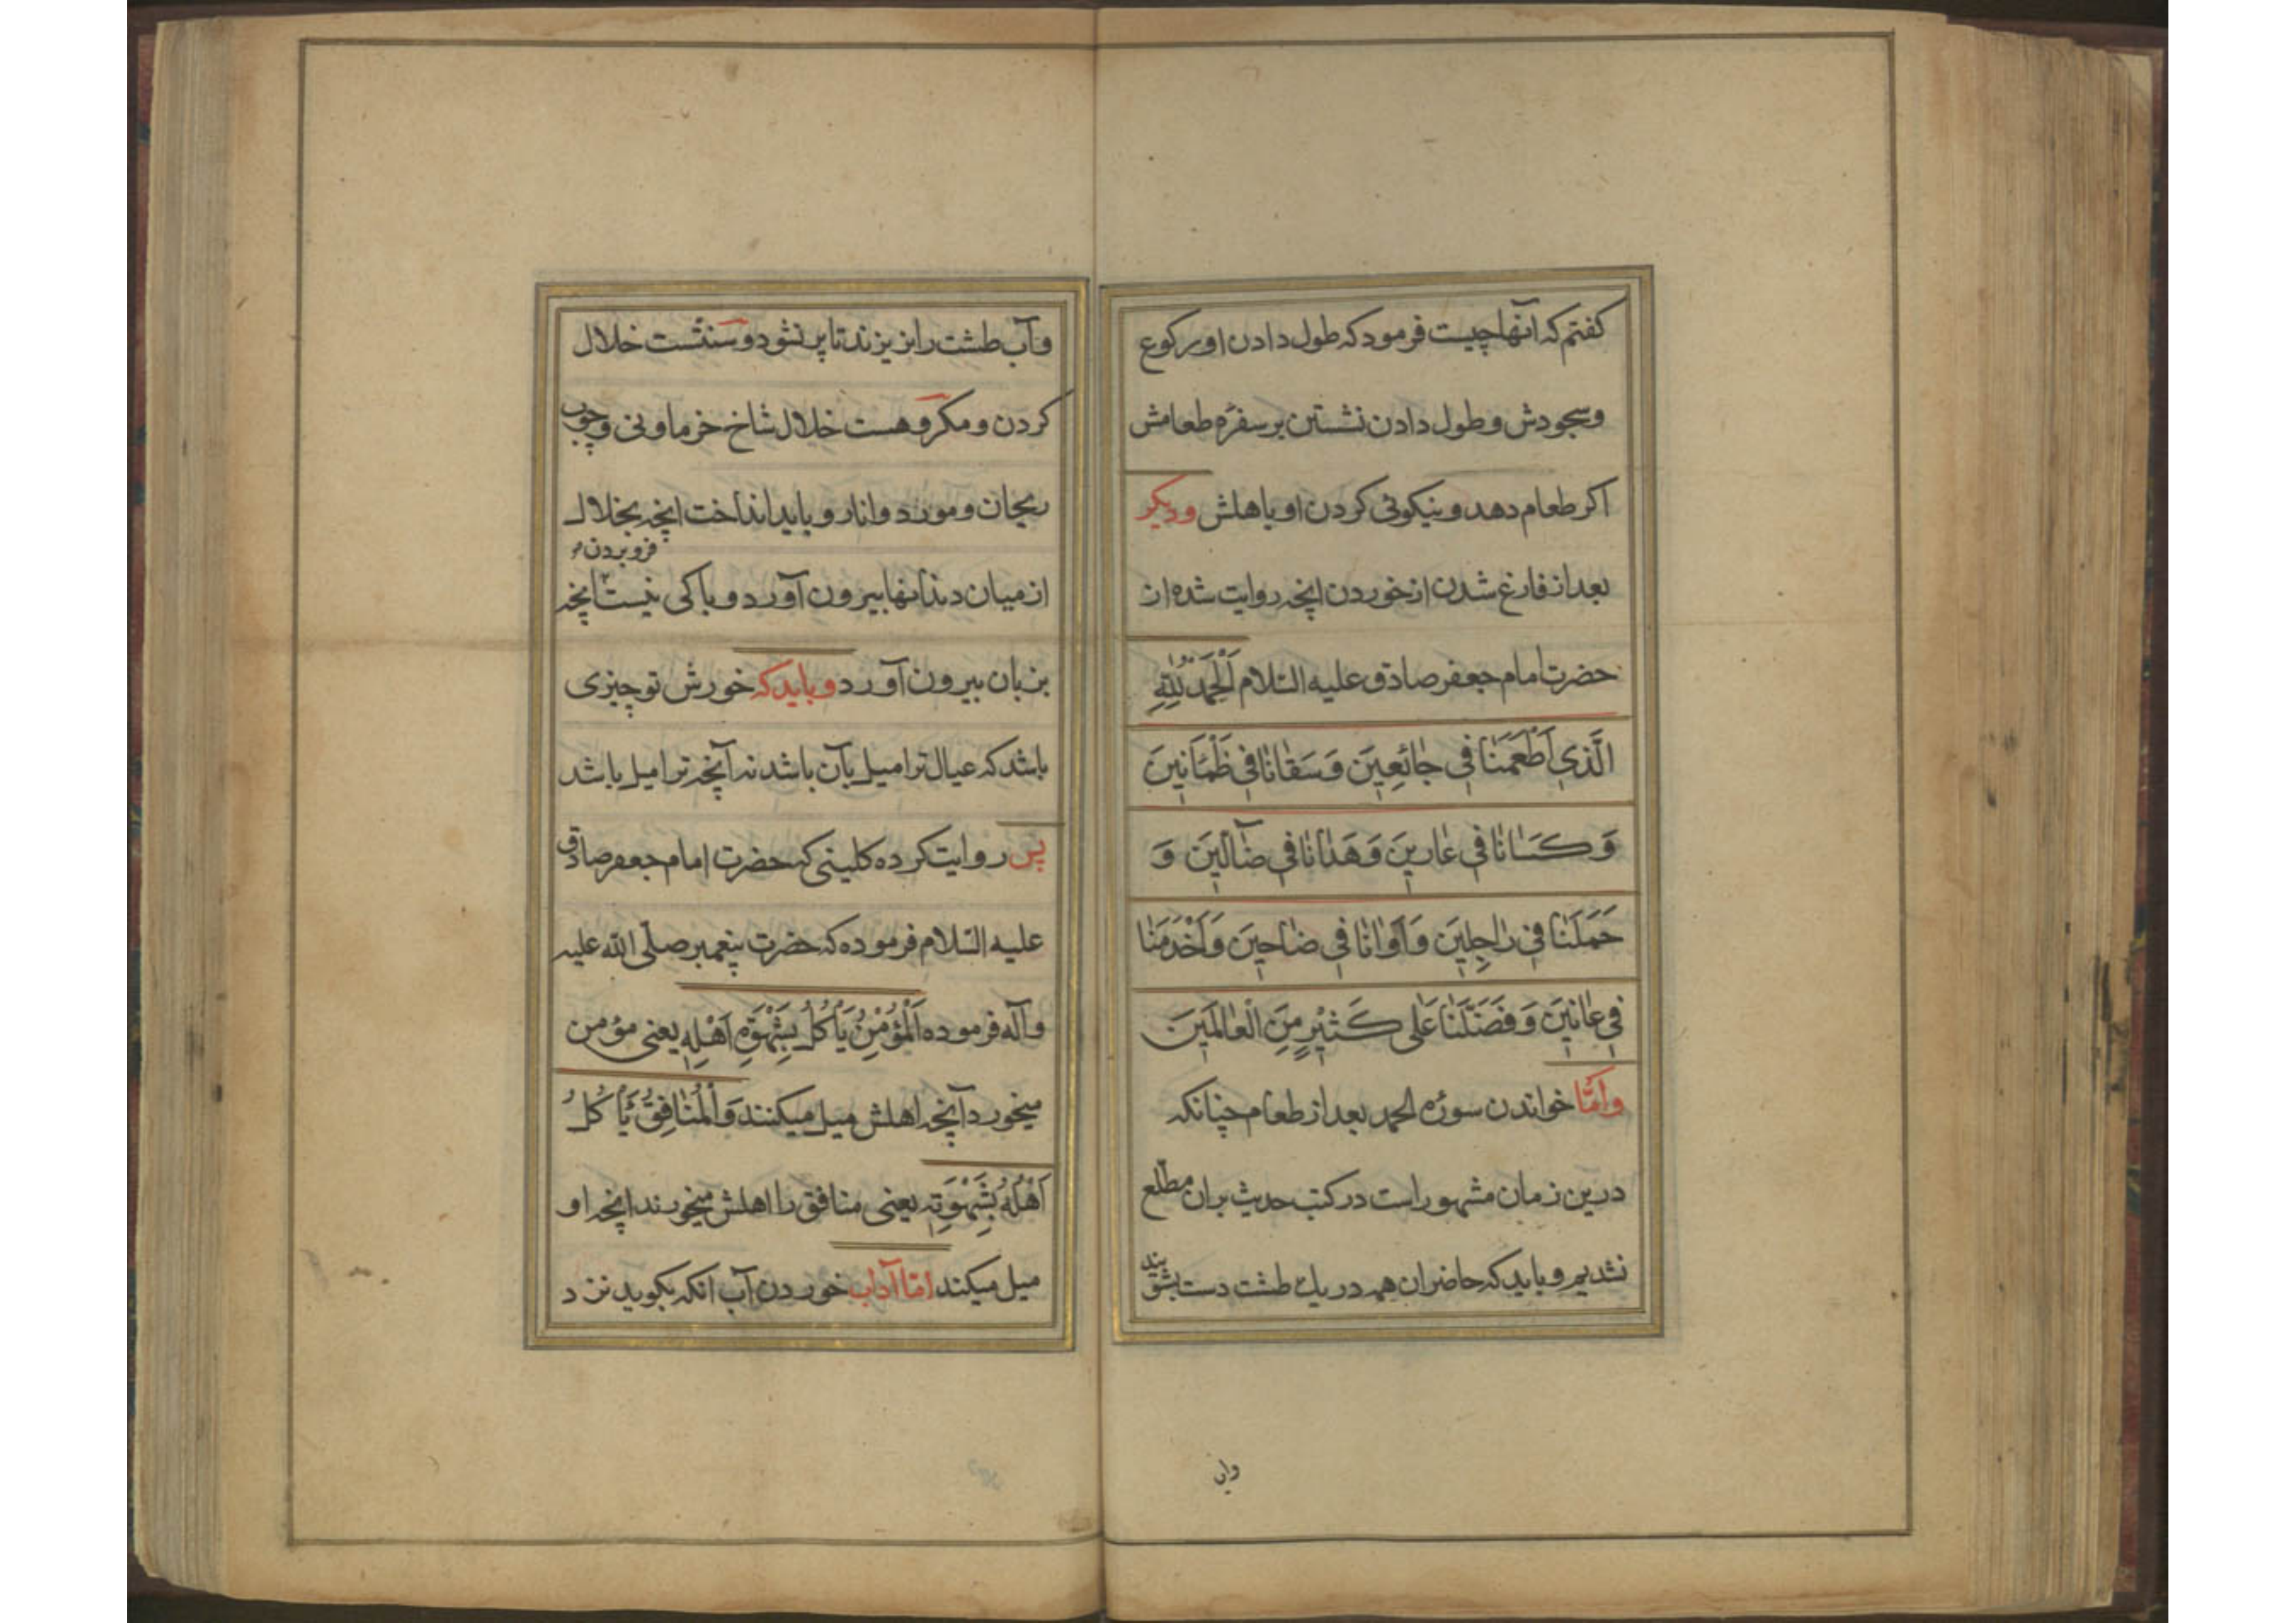 کفتم که آنها چیست فرمود که طول دادن او رکوع
وسجودش و طول دادن نشستن بر سفره طعامش
اکر طعام دهد و نیکوئی کردن او باهلش ودیکر
بعد از فارغ شدن از خوردن آنچه روایت شده از
حضرت امام جعفر صادق علیه السلام اَلْحَمْدُ لِلّٰهِ
الَّذي اَطْعَمَنٰا في جٰائِعينَ وَ سَقٰانٰا في ظَمْاٰنينَ
وَ كَسٰانٰا في عٰارينَ وَ هَدٰانٰا في ضٰآلّينَ وَ
حَمَلَنٰا في رٰاجِلينَ وَ آوٰانٰا في ضٰاحينَ وَ اَخْدَمَنٰا
في عٰانينَ وَ فَضَّلَنٰا عَلى كَثيْرٍ مِنَ الْعٰالَمينَ
وامّا خواندن سورهٔ الحمد بعد از طعام چنانکه
درین زمان مشهور است در کتب حدیث بران مطلع
نشدیم و باید که حاضران همه در یک طشت دست بشویند
واب
وآب طشت را نریزند تا پر نشود و سنتست خلال
کردن و مکروهست خلال شاخ خرما و نی و چوب
ریحان و مورد و انار و باید انداخت آنچه بخلال
فرو بردن
از میان دندانها بیرون آورد و باکی نیست آنچه
بزبان بیرون آورد و باید که خورش تو چیزی
باشد که عیال ترا میل بآن باشد نه آنچه ترا میل باشد
پس روایت کرده کلینی که حضرت امام جعفر صادق
علیه السلام فرموده که حضرت پیغمبر صلّی الله علیه
وآله فرموده اَلْمُؤْمِنُ يَأْكُلُ بِشَهْوَةِ اَهْلِهِ یعنی مؤمن
میخورد آنچه اهلش میل میکنند وَالْمُنٰافِقُ يَأْكُلُ
اَهْلُهُ بِشَهْوَتِهِ یعنی منافق را اهلش میخورند آنچه او
میل میکند امّا آداب خوردن آب آنکه بکوید نزد